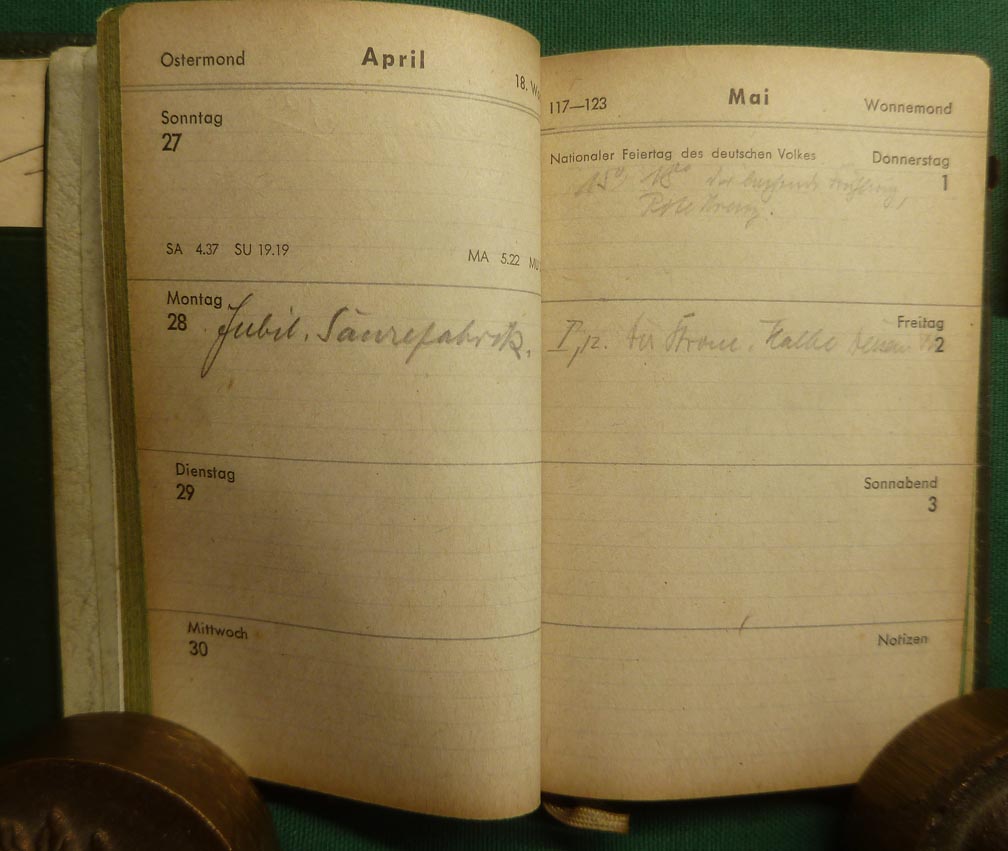 Ostermond April
18. W
Sonntag
27
SA 4.37 SU 19.19 MA 5.22 MU
Montag
28 Jubil. Säurefabrik.
Dienstag
29
Mittwoch
30
117—123 Mai Wonnemond
Nationaler Feiertag des deutschen Volkes Donnerstag
1
15⁰⁰ 18⁰⁰
Rote Kreuz.
Freitag
Halbe 2
Sonnabend
3
Notizen